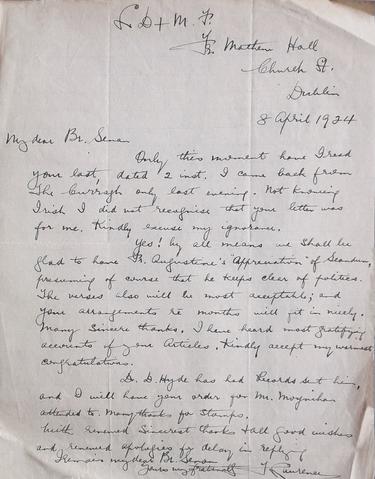 L D + M. F.
Fr. Mathew Hall
Church St.
Dublin
8 April 1924
My dear Br. Senan
Only this moment have I read
your last dated 2 inst. I came back from
The Curragh only last evening. Not knowing
Irish I did not recognise that your letter was
for me. Kindly excuse my ignorance.
Yes! by all means we shall be
glad to have Fr. Augustine's "Appreciation" of
presuming of course that he keeps clear of politics.
The verses also will be most acceptable; and
your arrangements re months will fit in nicely.
Many sincere thanks. I have heard most gratifying
accounts of your Articles. Kindly accept my warmest
congratulations.
Dr. D. Hyde has had Records sent him,
and I will have your order for Mr. Moynihan
attended to. Many thanks for Stamps.
With renewed Sincerest thanks & all Good wishes
and renewed apologies for delay in replying
I remain my dear Br. Senan
Yours my fraternally